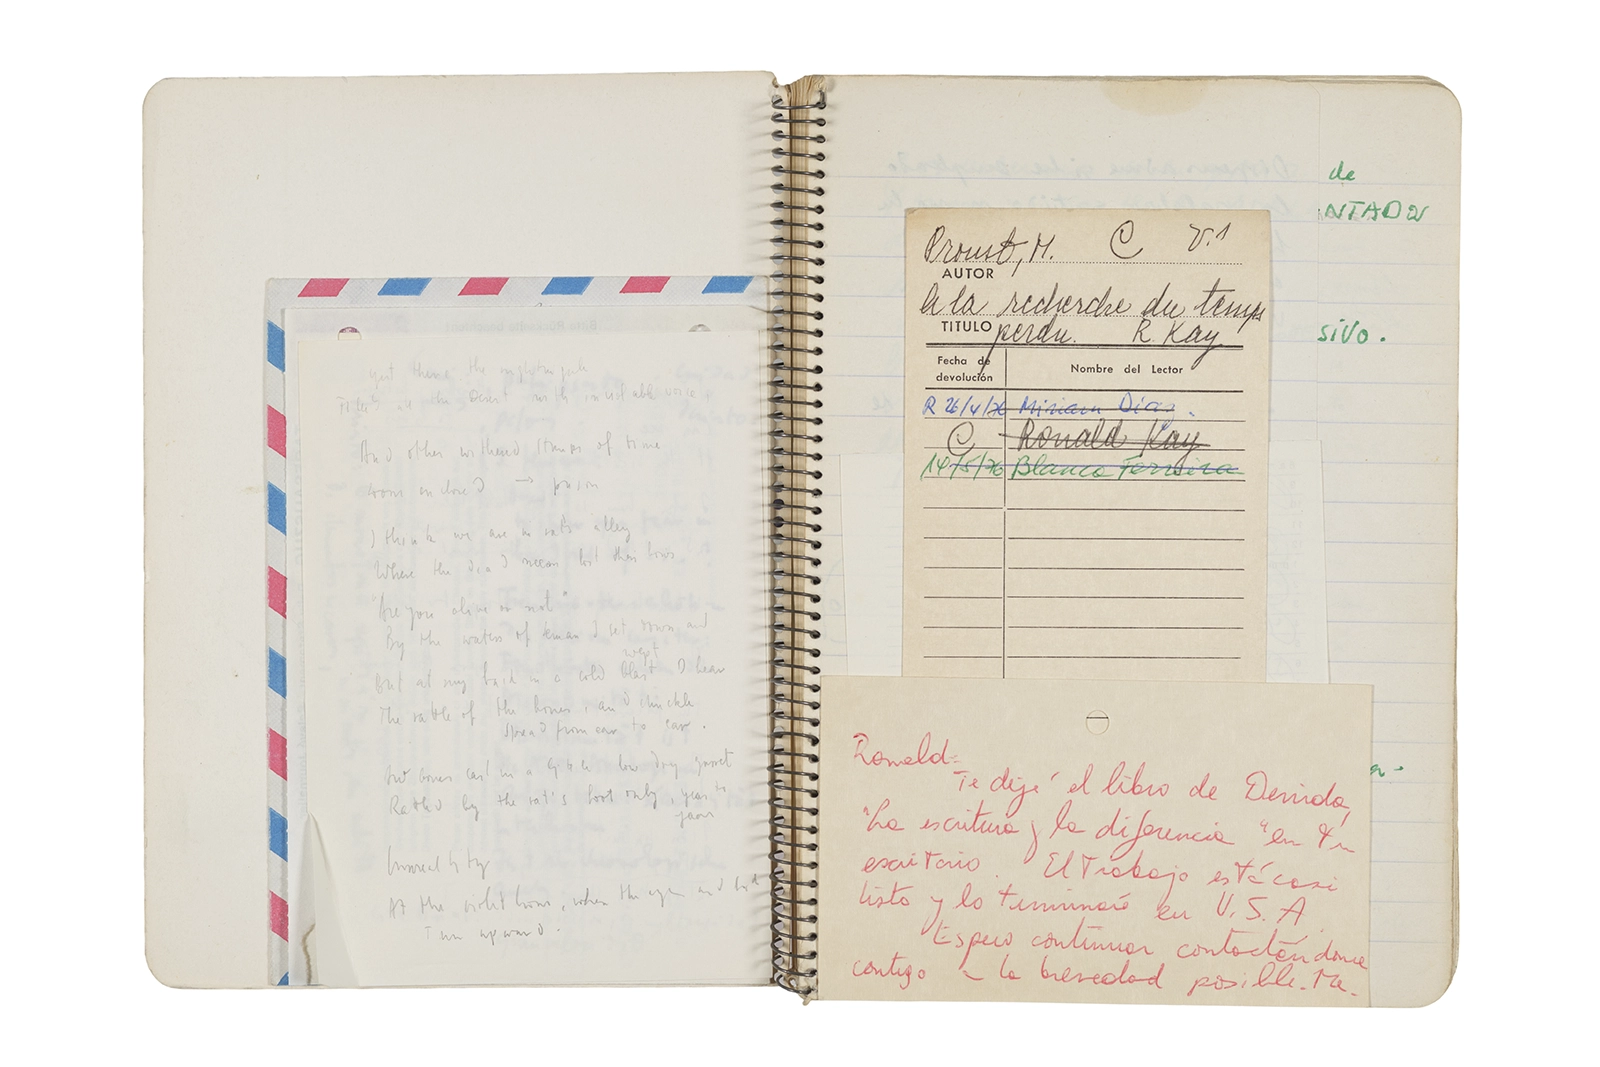 yet there the nightingale
Filled all the desert with inviolable voice
And other withered stumps of time
I think we are in rats alley
Where the dead men lost their bones
"Are you alive or not"
By the waters of Leman I sat down and
wept
But at my back in a cold blast I hear
The rattle of the bones, and chuckle
spread from ear to ear.
And bones cast in a little low dry garret
Rattled by the rat's foot only, year to
year
Unreal City
At the violet hour, when the eyes and back
Turn upward.
de
NTADOR
sivo.
Proust, M. C V.1
AUTOR
A la recherche du temps
TITULO perdu. R. Kay
Fecha de devolución Nombre del Lector
R 26/4/76 Miriam Díaz.
C Ronald Kay
14/5/76 Blanca Ferreira
Ronald:
Te dejé el libro de Derrida,
"La escritura y la diferencia" en tu
escritorio. El trabajo está casi
listo y lo terminaré en U.S.A.
Espero continuar contactándome
contigo a la brevedad posible. Me.